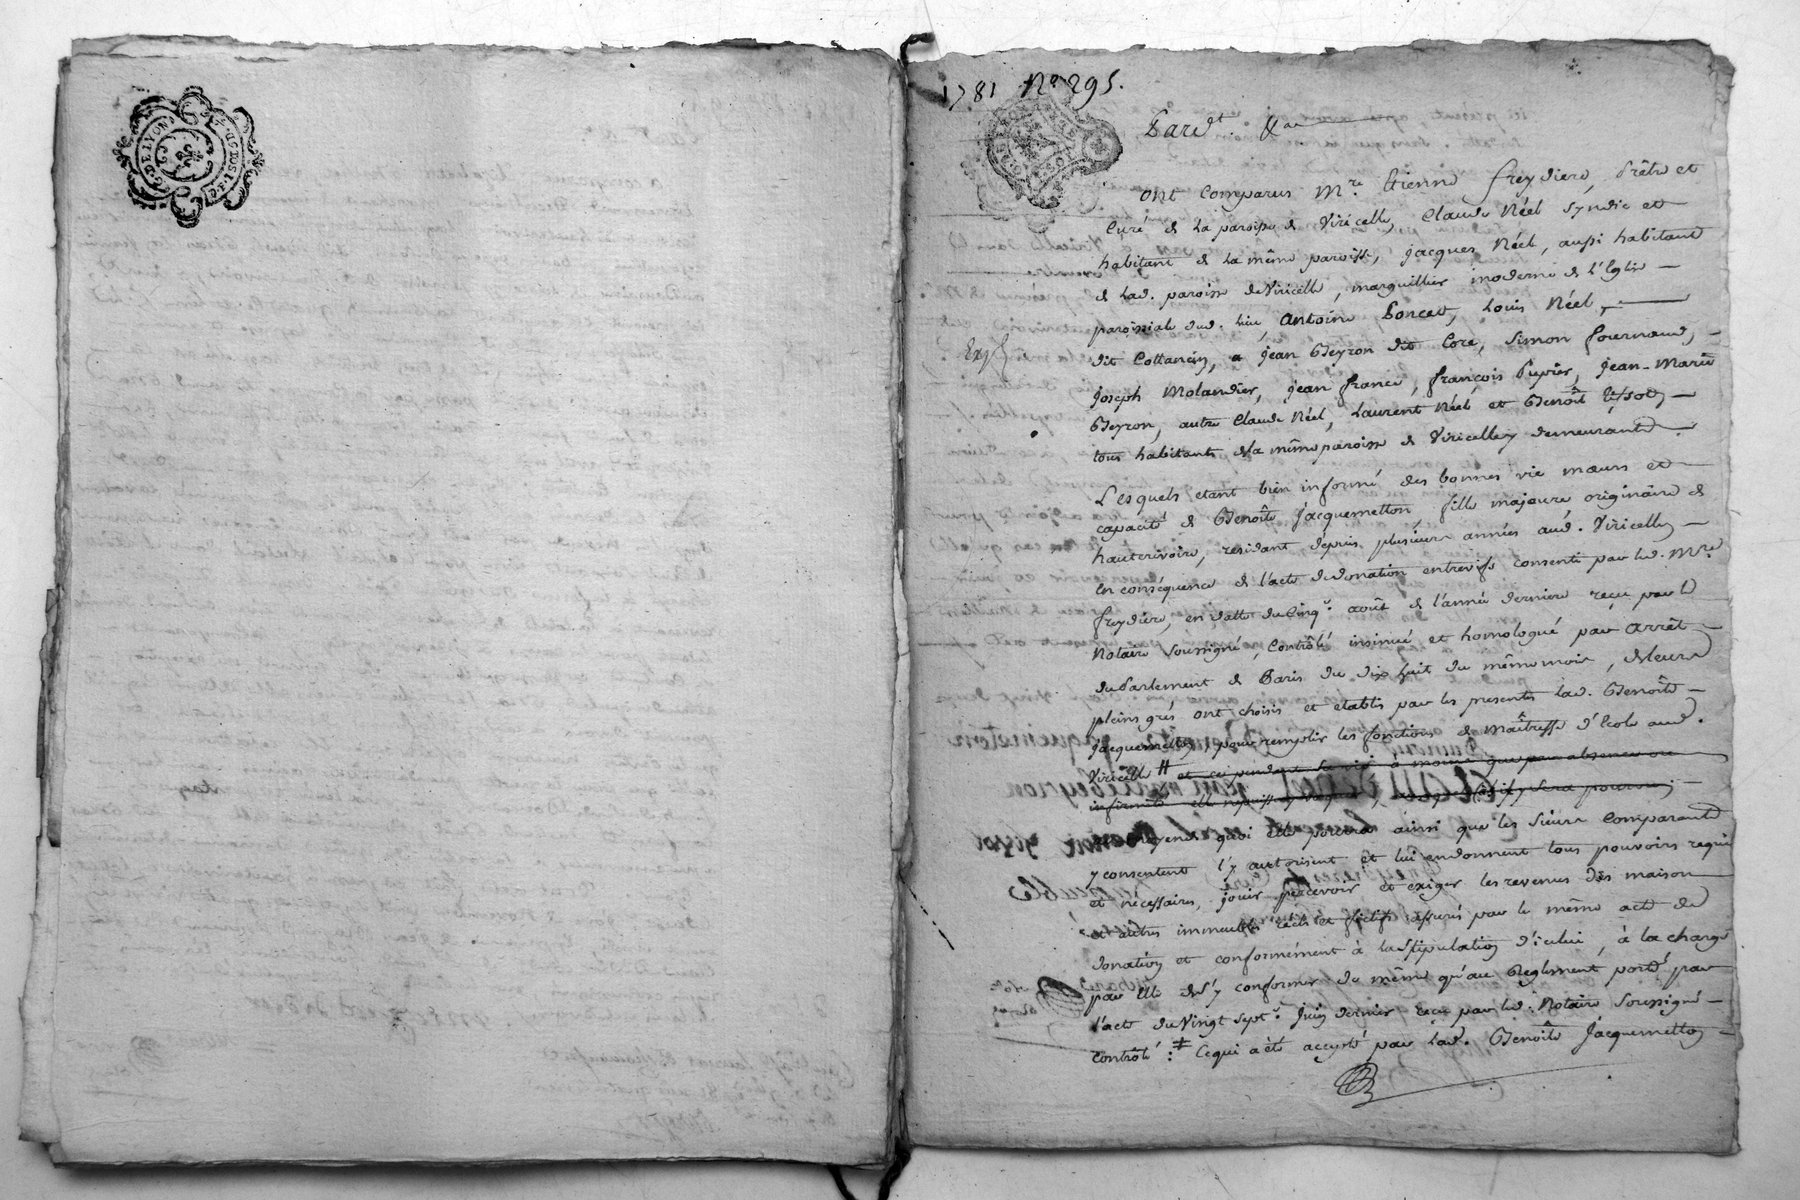 G. DE LYON
1781 Nº 295.
Pard.t &.a
ont Comparus M.re Etienne freydiere, Prêtre et
Curé de La paroisse de Viricelle, Claude Néel syndic et
habitant de La même paroisse, jacques Néel, aussi habitant
de Lad. paroisse de Viricelle, marguillier moderne de L'Eglise
paroissiale dud. lieu, Antoine Poncet, Louis Néel,
Exp.
dit Cottancin, jean Beyron dit Core, Simon fournand,
joseph Molandier, jean france, françois Pupier, jean-Marie
Beyron, autre Claude Néel, Laurent Néel et Benoît
tous habitants de la même paroisse de Viricelle y demeurants
Lesquels etant bien informé des bonnes vie mœurs et
capacité de Benoîte Jacquemetton fille majeure originaire de
hauterivoire, residant depuis plusieurs années aud. Viricelle,
en conséquence de l'acte de donation entrevifs consenti par led. M.re
freydiere, en datte du Cinq.e août de l'année derniere reçu par le
Notaire soussigné, Contrôlé insinué et homologué par Arrêt
du Parlement de Paris du dix huit du même mois, de leurs
pleins grés ont choisis et etablis par les presentes lad. Benoîte
jacquemetton, pour remplir les fonctions de Maîtresse d'Ecole aud.
Viricelle # et ce pendant sa vie à moins que par absence ou
infirmité elle ne puisse y vaquer, auquel cas il y sera pourvu
moyennant quoi elle pourra ainsi que les sieurs Comparants
y consentent l'y autorisent et lui en donnent tous pouvoirs requis
et nécessaires, jouir percevoir et exiger les revenus des maison
et autres immeubles réels et fictifs assurés par le même acte de
donation et conformément à la stipulation d'icelui, à la charge
par elle de s'y conformer de même qu'au Reglement porté par
l'acte du Vingt sept.e Juin dernier reçu par led. Notaire soussigné
contrôlé: ‡ Ce qui a été accepté par Lad. Benoîte Jacquemetton